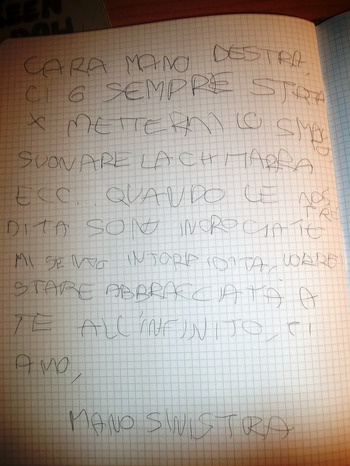 CARA MANO DESTRA,
CI 6 SEMPRE STATA
X METTERMI LO SMALTO
SUONARE LA CHITARRA
ECC.. QUANDO LE NOSTRE
DITA SONO INCROCIATE
MI SENTO INTORPIDITA, VORREI
STARE ABBRACCIATA A
TE ALL'INFINITO, TI
AMO,
MANO SINISTRA